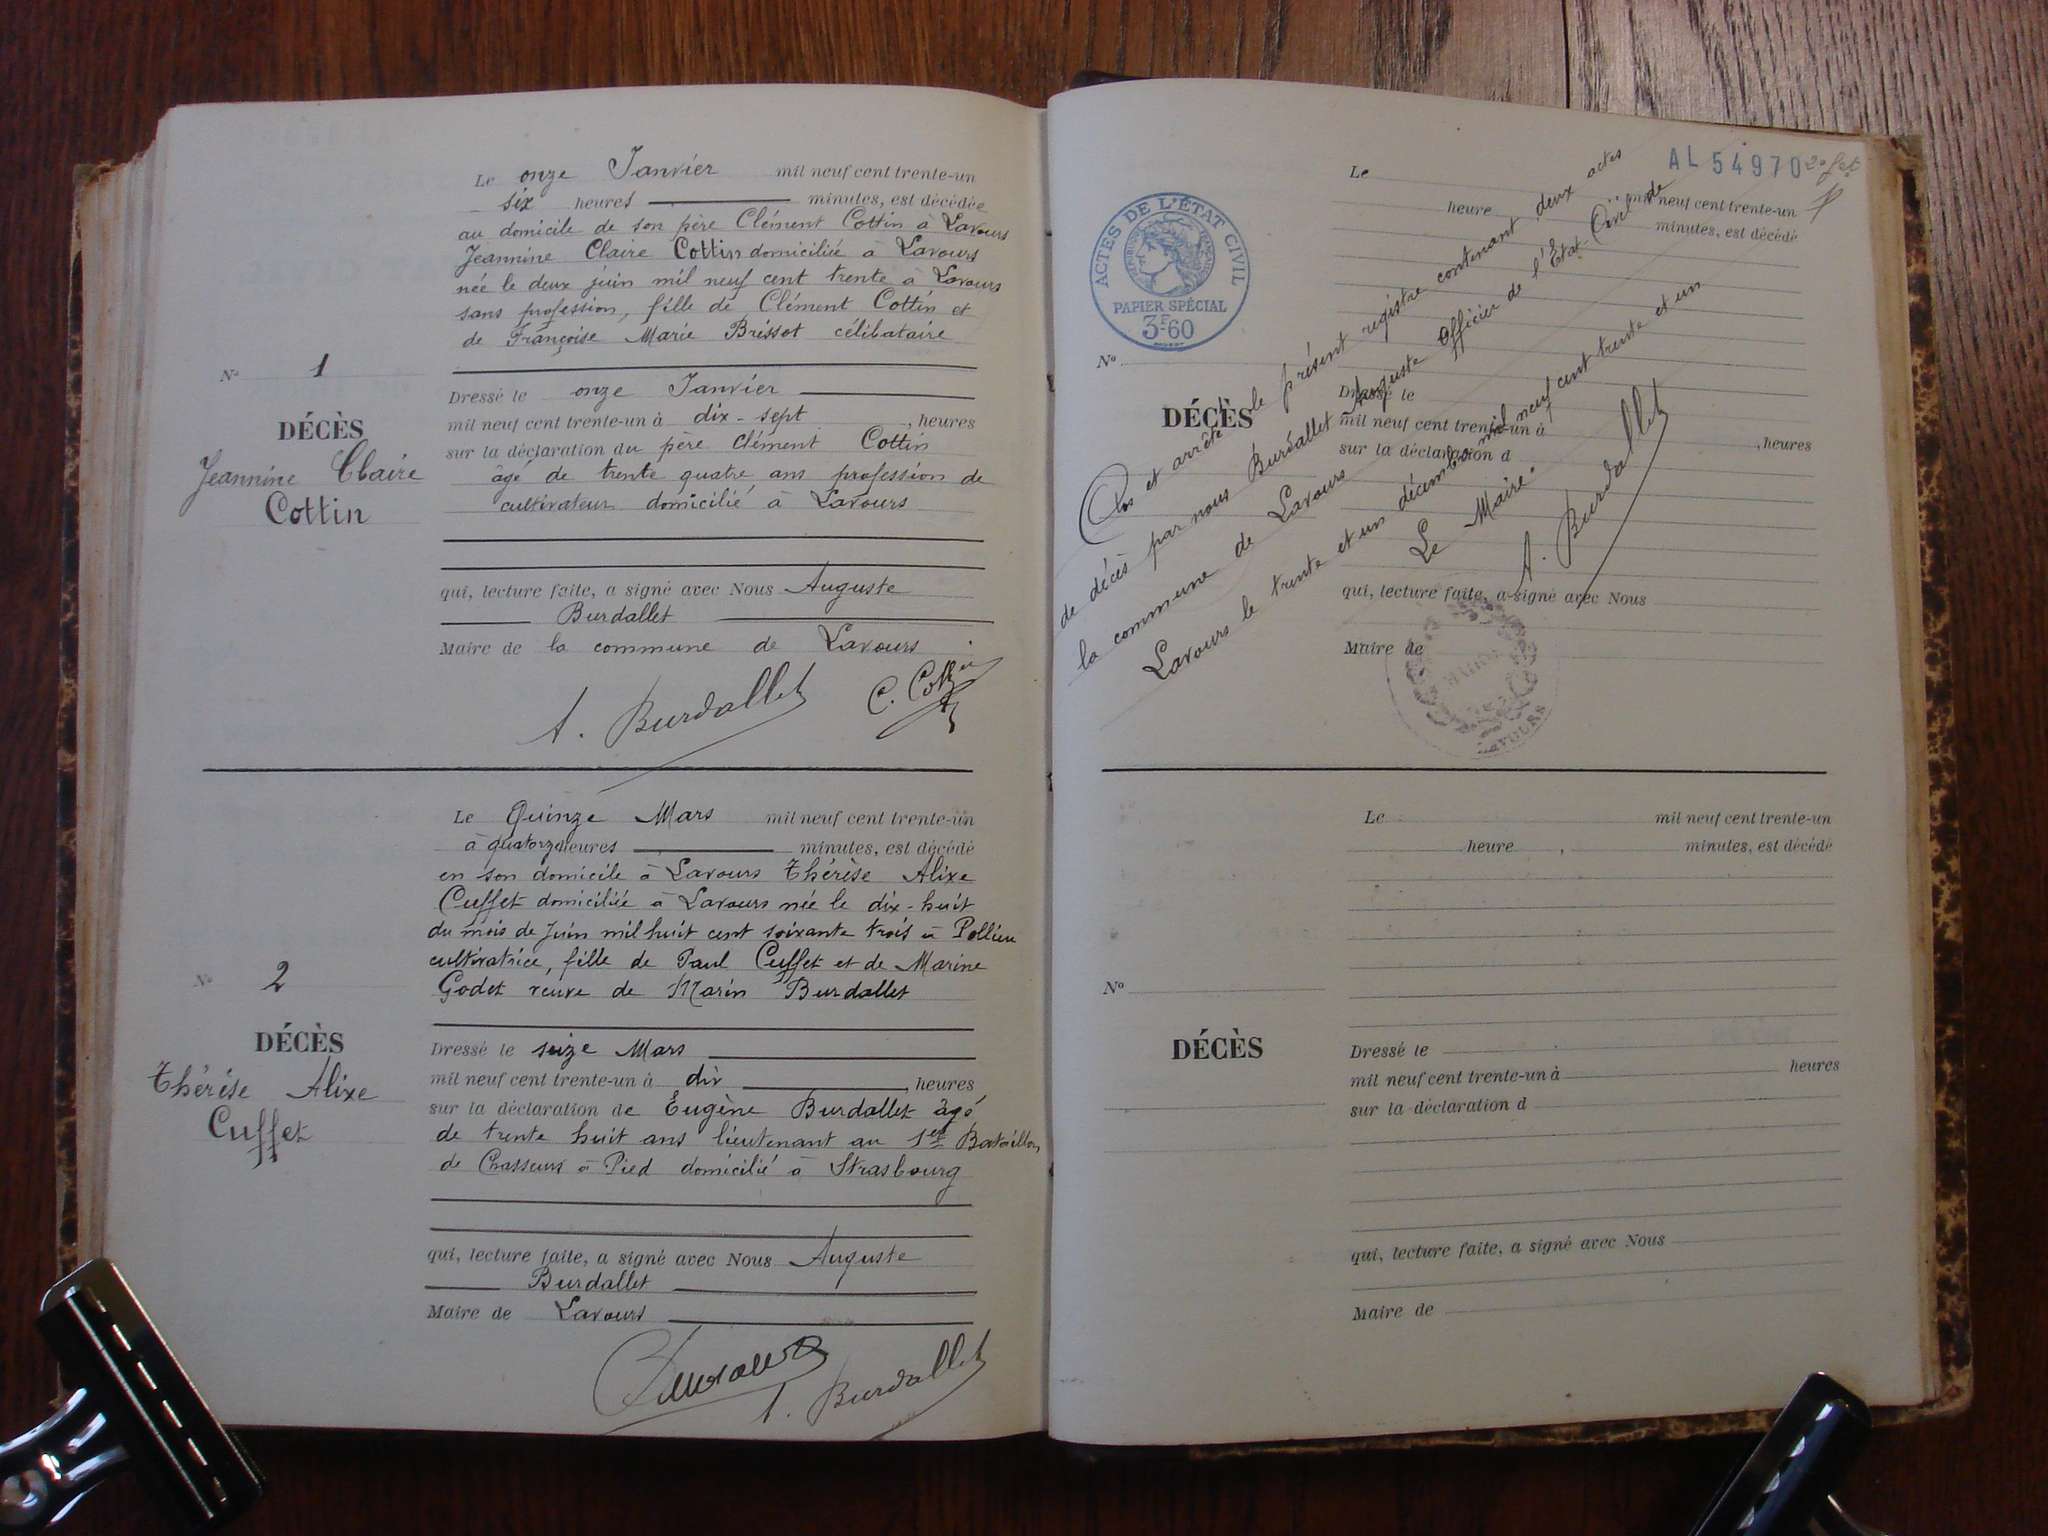 Le onze Janvier mil neuf cent trente-un
six heures minutes, est décédée
au domicile de son père Clément Cottin à Lavours
Jeannine Claire Cottin domiciliée à Lavours
née le deux juin mil neuf cent trente à Lavours
sans profession, fille de Clément Cottin et
de Françoise Marie Brissot célibataire
No 1
DÉCÈS
Jeannine Claire
Cottin
Dressé le onze Janvier
mil neuf cent trente-un à dix-sept, heures
sur la déclaration du père Clément Cottin
âgé de trente quatre ans profession de
cultivateur domicilié à Lavours
qui, lecture faite, a signé avec Nous Auguste
Burdallet
Maire de la commune de Lavours
A. Burdallet C. Cottin
Le Quinze Mars mil neuf cent trente-un
à quatorze heures minutes, est décédé
en son domicile à Lavours Thérèse Alixe
Cuffet domiciliée à Lavours née le dix-huit
du mois de Juin mil huit cent soixante trois à Pollieu
cultivatrice, fille de Paul Cuffet et de Marine
Godet veuve de Marin Burdallet
No 2
DÉCÈS
Thérèse Alixe
Cuffet
Dressé le seize Mars
mil neuf cent trente-un à dix, heures
sur la déclaration de Eugène Burdallet âgé
de trente huit ans lieutenant au 1er Bataillon
de Chasseurs à Pied domicilié à Strasbourg
qui, lecture faite, a signé avec Nous Auguste
Burdallet
Maire de Lavours
A. Burdallet
AL 54970
ACTES DE L'ÉTAT CIVIL
PAPIER SPÉCIAL
3F60
Le mil neuf cent trente-un
heure minutes, est décédé
No
DÉCÈS
Dressé le
mil neuf cent trente-un à , heures
sur la déclaration d
qui, lecture faite, a signé avec Nous
Maire de
Clos et arrêté le présent registre contenant deux actes
de décès par nous Burdallet Auguste Officier de l'Etat-Civil de
la commune de Lavours
Lavours le trente et un décembre mil neuf cent trente et un
Le Maire
A. Burdallet
MAIRIE
LAVOURS
Le mil neuf cent trente-un
heure , minutes, est décédé
No
DÉCÈS
Dressé le
mil neuf cent trente-un à heures
sur la déclaration d
qui, lecture faite, a signé avec Nous
Maire de